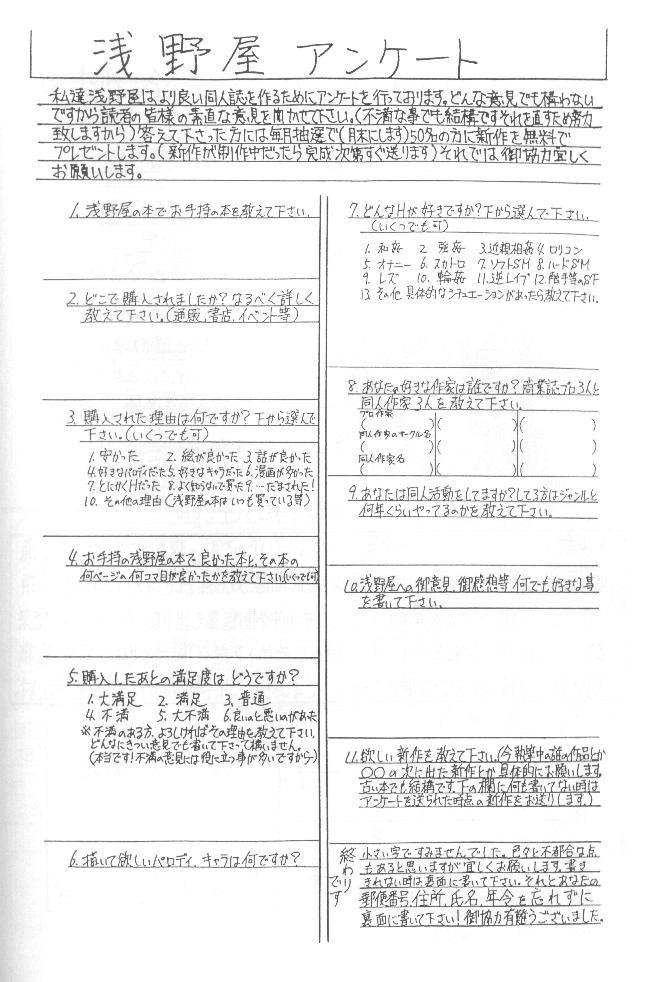 浅野屋 アンケート
私達浅野屋は、より良い同人誌を作るためにアンケートを行っております。どんな意見でも構わない
ですから読者の皆様の素直な意見を聞かせて下さい。(不満な事でも結構ですそれを直すため努力
致しますから)答えて下さった方には毎月抽選で(月末にします)50名の方に新作を無料で
プレゼントします。(新作が制作中だったら完成次第すぐ送ります)それでは御協力宜しく
お願いします。
1. 浅野屋の本でお手持の本を教えて下さい。
2. どこで購入されましたか?なるべく詳しく
教えて下さい。(通販、書店、イベント等)
3. 購入された理由は何ですか?下から選んで
下さい。(いくつでも可)
1. 安かった 2. 絵が良かった 3. 話が良かった
4. 好きなパロディだった 5. 好きなキャラだった 6. 漫画が多かった
7. とにかくHだった 8. よく知らないで買った 9. …だまされた!
10. その他の理由(浅野屋の本はいつも買っている等)
4. お手持の浅野屋の本で良かった本と、その本の
何ページの何コマ目が良かったかを教えて下さい(いくつでも可)
5. 購入したあとの満足度はどうですか?
1. 大満足 2. 満足 3. 普通
4. 不満 5. 大不満 6. 良いのと悪いのがあった
※不満のある方、よろしければその理由を教えて下さい。
どんなにきつい意見でも書いて下さって構いません。
(本当です!不満の意見には役に立つ事が多いですから)
6. 描いて欲しいパロディ、キャラは何ですか?
7. どんなHが好きですか?下から選んで下さい。
(いくつでも可)
1. 和姦 2. 強姦 3. 近親相姦 4. ロリコン
5. オナニー 6. スカトロ 7. ソフトSM 8. ハードSM
9. レズ 10. 輪姦 11. 逆レイプ 12. 触手等のSF
13. その他 具体的なシチュエーションがあったら教えて下さい。
8. あなたの好きな作家は誰ですか?商業誌・プロ3人と
同人作家3人を教えて下さい。
プロ作家
( )( )( )
同人作家のサークル名
( )( )( )
同人作家名
( )( )( )
9. あなたは同人活動をしてますか?してる方はジャンルと
何年くらいやってるのかを教えて下さい。
10. 浅野屋への御意見、御感想等 何でも好きな事
を書いて下さい。
11. 欲しい新作を教えて下さい。(今執筆中の話の作品とか
〇〇の次に出た新作とか具体的にお願いします。
古い本でも結構です。下の欄に何も書いてない時は
アンケートを送られた時点の新作をお送りします。)
終わりです
小さい字ですみませんでした。色々と不都合な点
もあると思いますが宜しくお願いします。書き
きれない時は裏面に書いて下さい。それとあなたの
郵便番号、住所、氏名、年令を忘れずに
裏面に書いて下さい!御協力有難うございました。